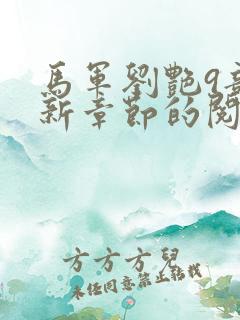 馬軍劉艷9章
新章節的閱
方方方兒
未經同意禁止轉載